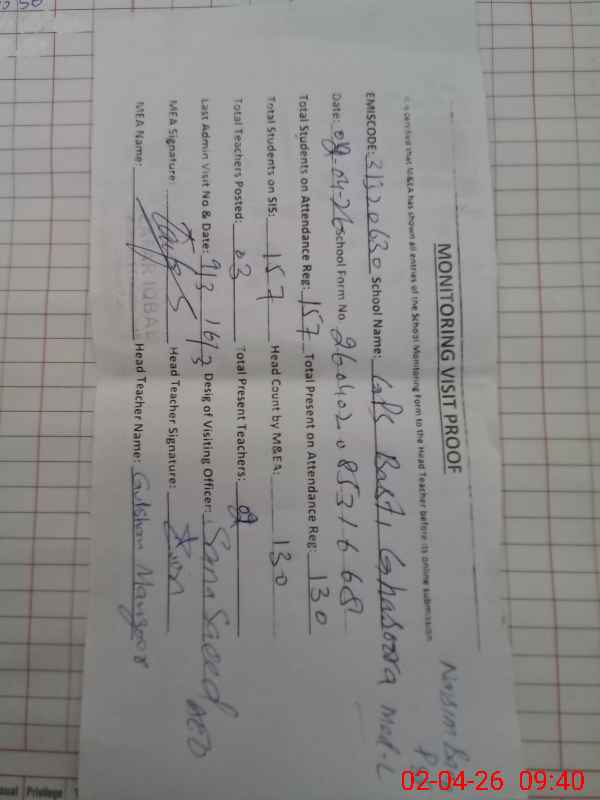 MONITORING VISIT PROOF
It is certified that M&EA has shown all entries of the School Monitoring Form to the Head Teacher before its online submission.
EMISCODE: 31320630 School Name: GGPS Basti Ghaboora
Date: 02-04-26 School Form No 26040208531668
Total Students on Attendance Reg: 157 Total Present on Attendance Reg: 130
Total Students on SIS: 157 Head Count by M&EA: 130
Total Teachers Posted: 03 Total Present Teachers: 2
Last Admin Visit No & Date: 9/3 16/3 Desig of Visiting Officer: Sana Saeed AEO
MEA Signature: Head Teacher Signature:
MEA Name: IQBAL Head Teacher Name: Gulshan Manzoor
Privilege
02-04-26 09:40